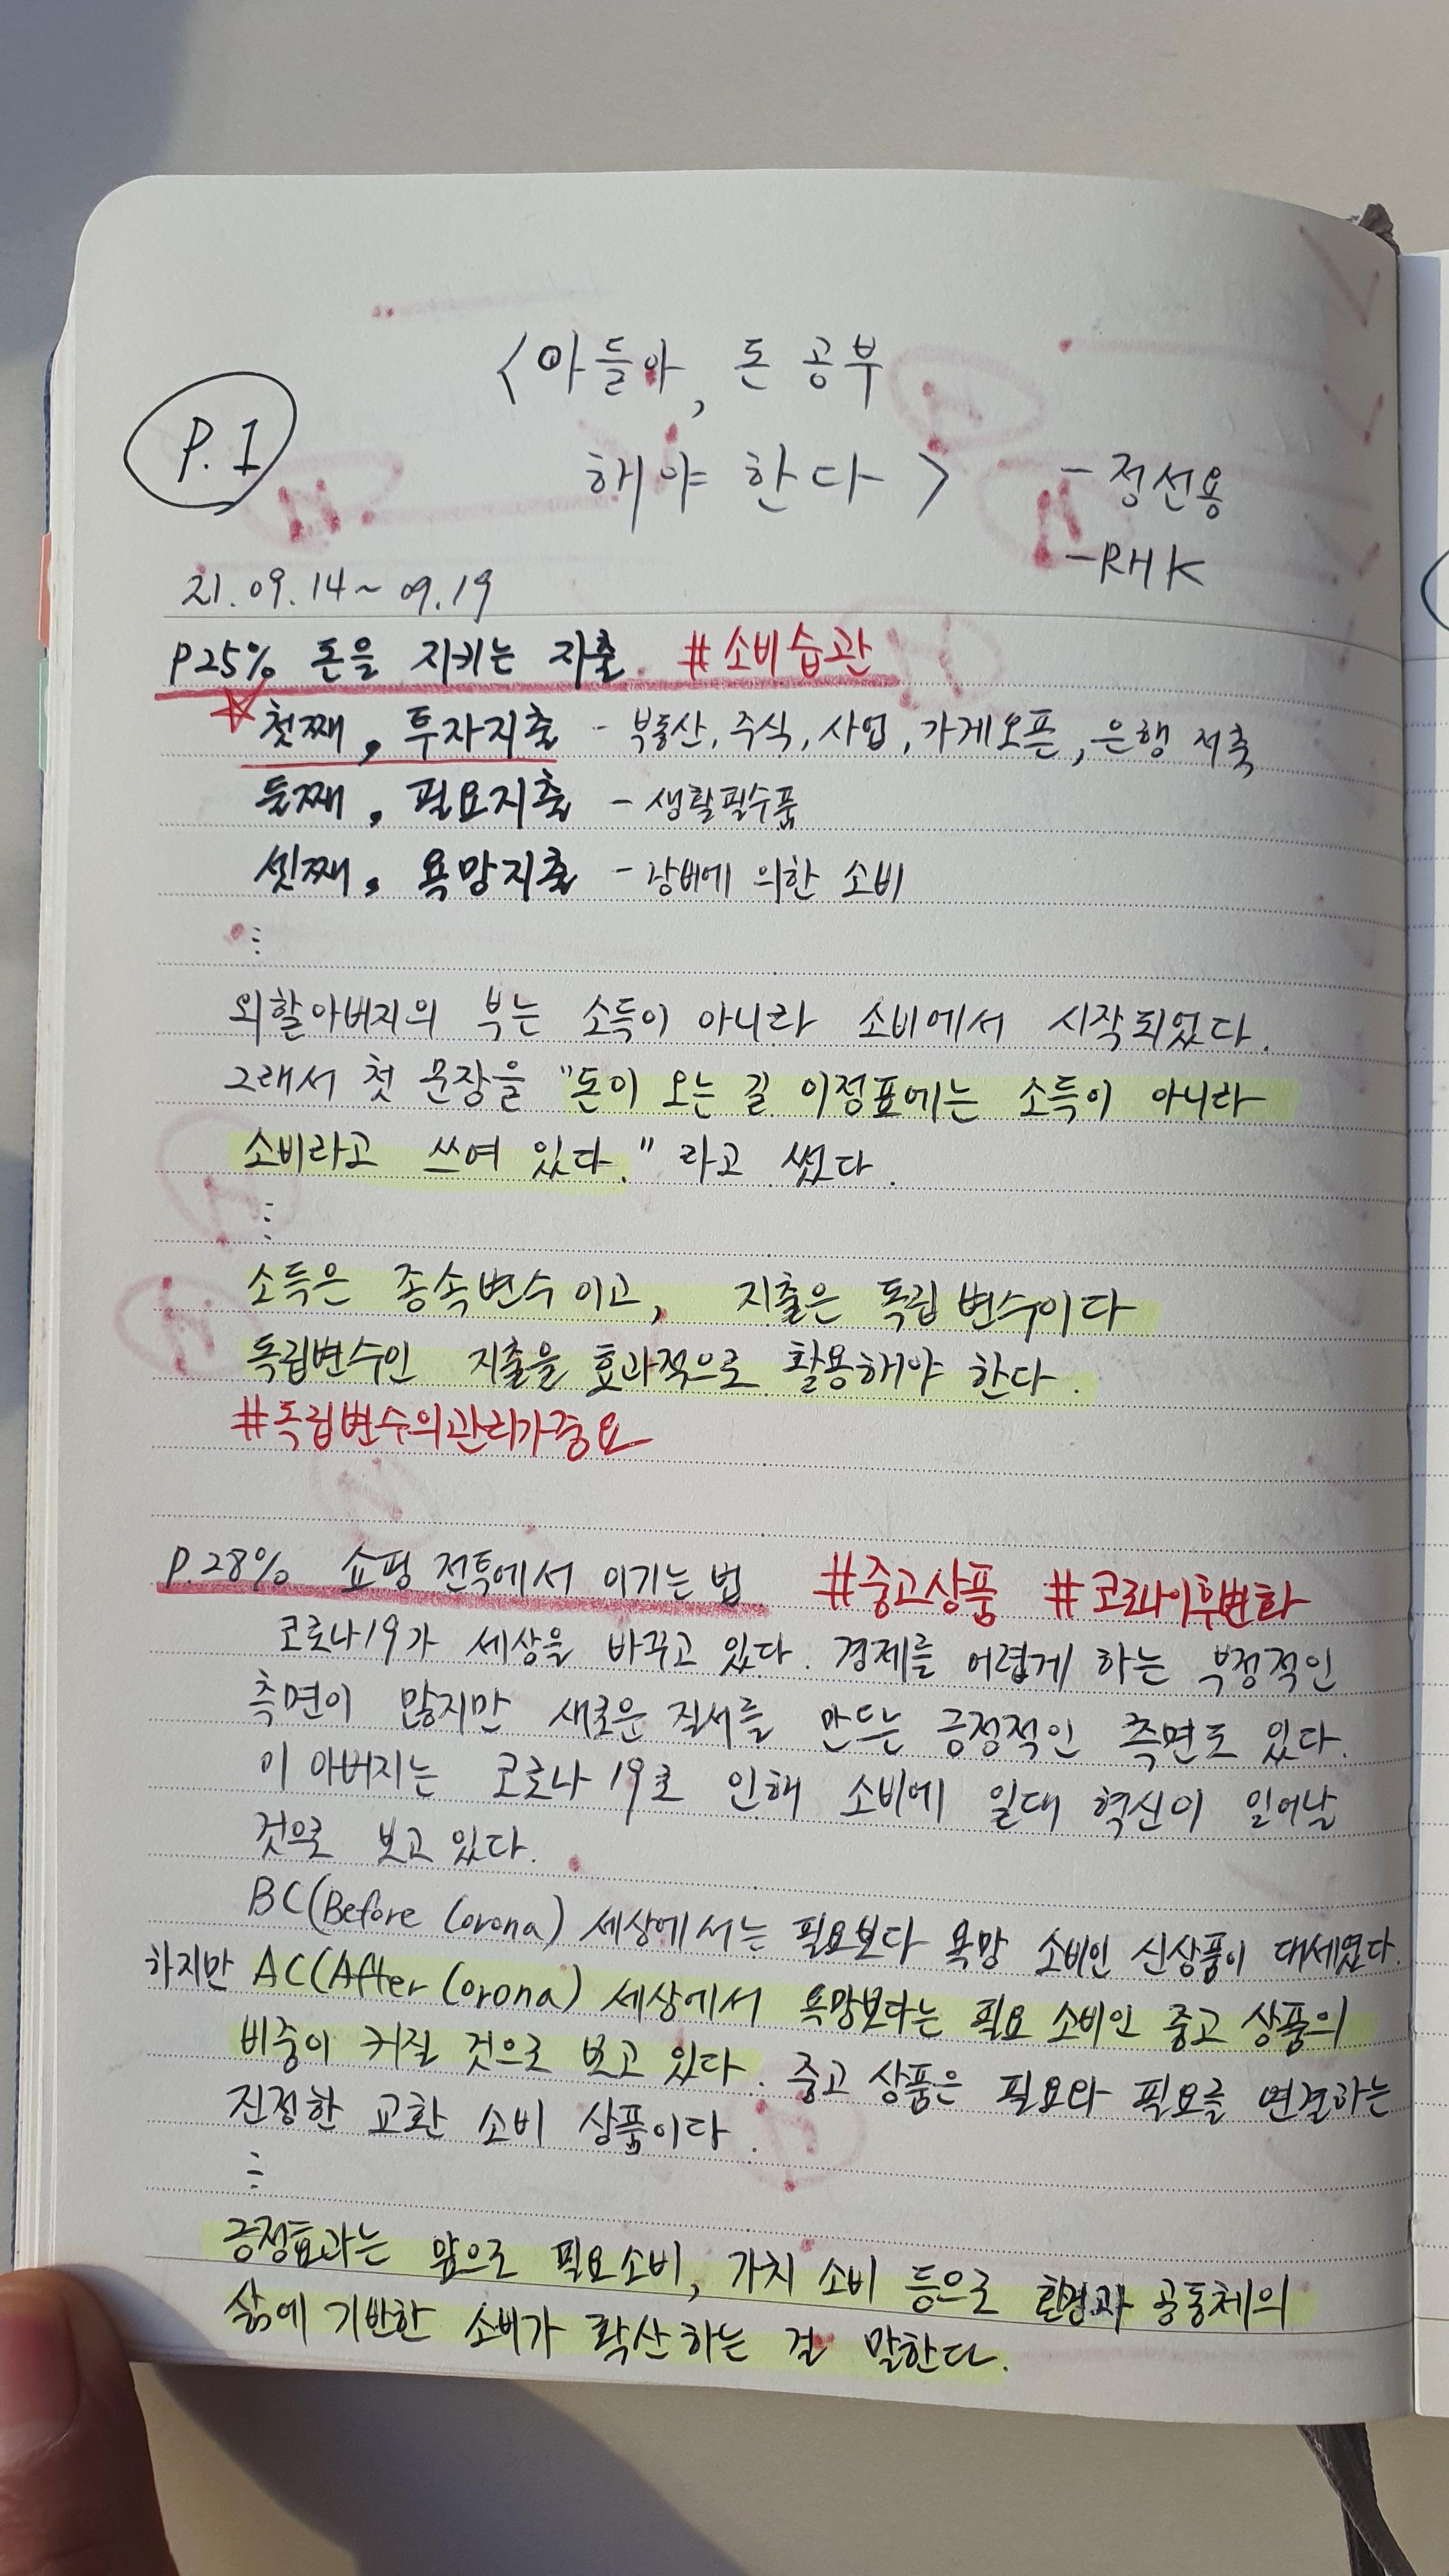 P.1
<아들아, 돈 공부
해야 한다>
-정선용
-RHK
21.09.14~09.19
P25% 돈을 지키는 지출. #소비습관
첫째, 투자지출 - 부동산, 주식, 사업, 가게오픈, 은행 저축
둘째, 필요지출 - 생활필수품
셋째, 욕망지출 - 낭비에 의한 소비
⋮
외할아버지의 부는 소득이 아니라 소비에서 시작되었다.
그래서 첫 문장을 "돈이 오는 길 이정표에는 소득이 아니라
소비라고 쓰여 있다." 라고 썼다.
⋮
소득은 종속변수이고, 지출은 독립변수이다
독립변수인 지출을 효과적으로 활용해야 한다.
#독립변수의관리가중요
P.28% 쇼핑 전투에서 이기는 법. #중고상품 #코로나이후변화
코로나19가 세상을 바꾸고 있다. 경제를 어렵게 하는 부정적인
측면이 많지만 새로운 질서를 만드는 긍정적인 측면도 있다.
이 아버지는 코로나19로 인해 소비에 일대 혁신이 일어날
것으로 보고 있다.
BC(Before Corona) 세상에서는 필요보다 욕망 소비인 신상품이 대세였다.
하지만 AC(After Corona) 세상에서 욕망보다는 필요 소비인 중고 상품의
비중이 커질 것으로 보고 있다. 중고 상품은 필요와 필요를 연결하는
진정한 교환 소비 상품이다.
⋮
긍정효과는 앞으로 필요소비, 가치 소비 등으로 환경과 공동체의
삶에 기반한 소비가 확산하는 걸 말한다.